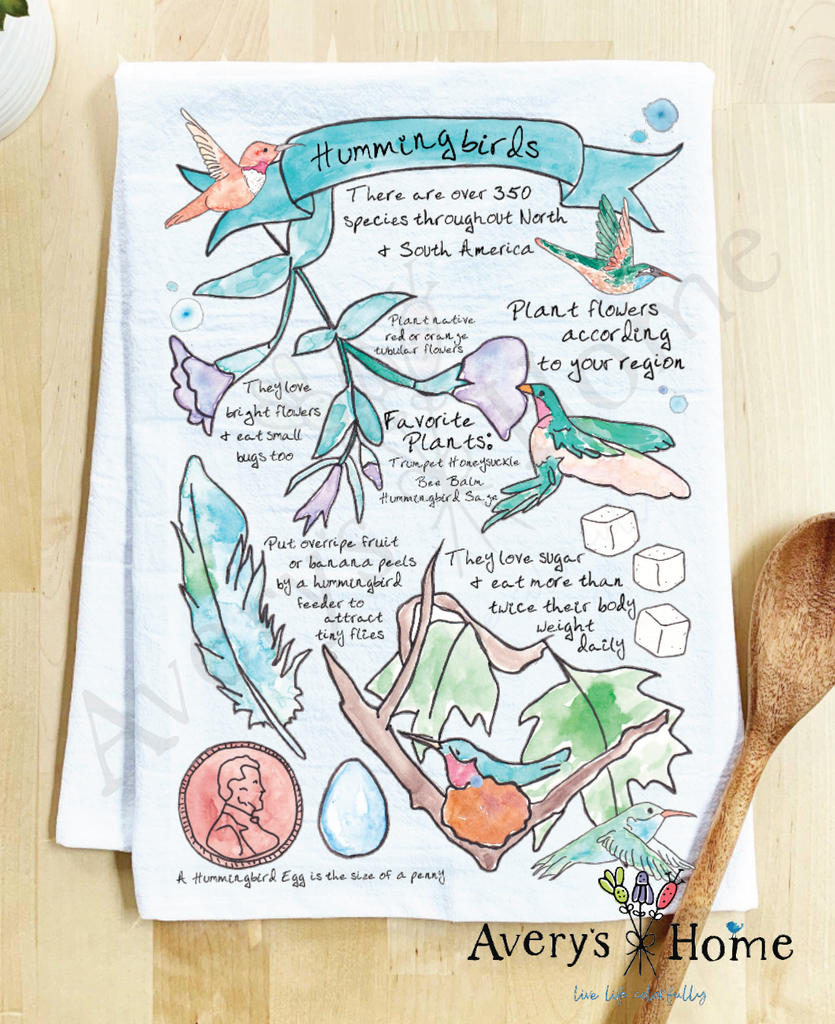 Hummingbirds
There are over 350
species throughout North
+ South America
Plant flowers
according
to your region
Plant native
red or orange
tubular flowers
They love
bright flowers
+ eat small
bugs too
Favorite
Plants:
Trumpet Honeysuckle
Bee Balm
Hummingbird Sage
Put overripe fruit
or banana peels
by a hummingbird
feeder to
attract
tiny flies
They love sugar
+ eat more than
twice their body
weight
daily
A Hummingbird Egg is the size of a penny
Avery's Home
live life colorfully
Avery's Home